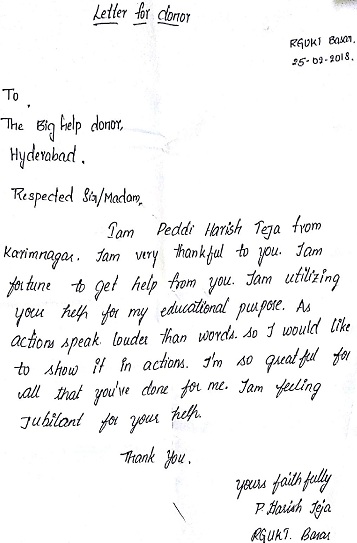 Letter for donor
RGUKT Basar.
25-02-2018.
To ,
The Big help donor,
Hyderabad .
Respected Sir/Madam,
Iam Peddi Harish Teja from
Karimnagar. Iam very thankful to you. Iam
fortune to get help from you. Iam utilizing
your help for my educational purpose. As
actions speak louder than words. so I would like
to show it in actions. I'm so greatful for
all that you've done for me. Iam feeling
Jubilant for your help.
Thank You.
yours faithfully
P. Harish Teja
RGUKT. Basar